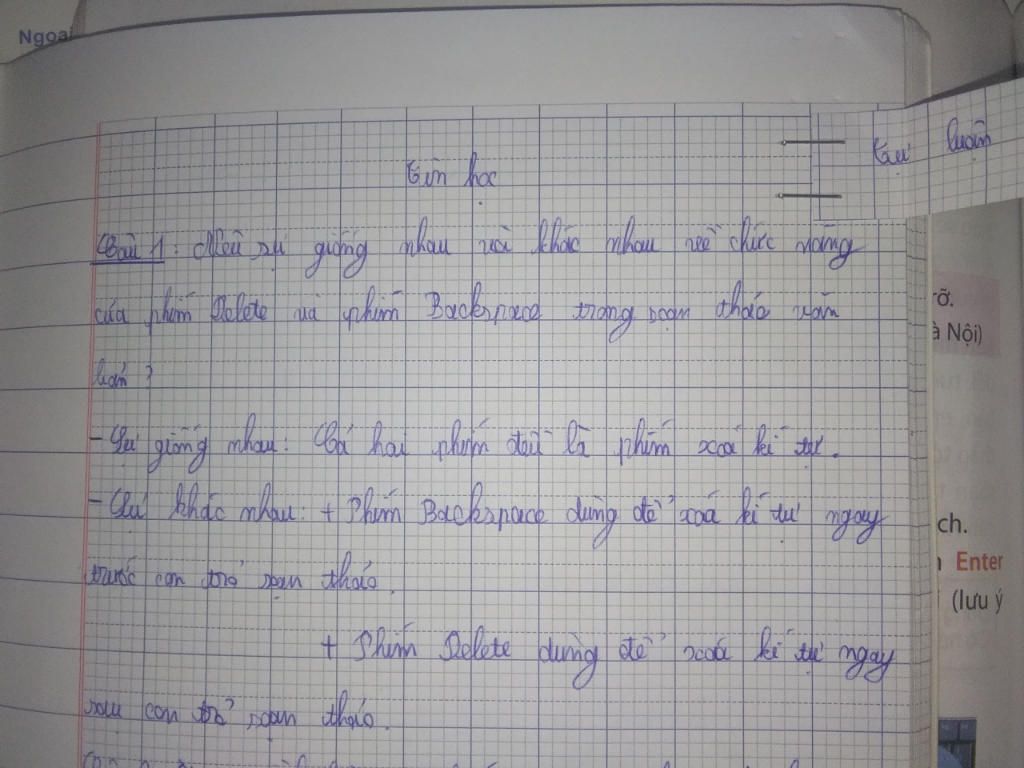 Ngoại
tự luận
Tin học
Câu 1: Nêu sự giống nhau và khác nhau về chức năng
của phím Delete và phím Backspace trong soạn thảo văn
bản ?
- Sự giống nhau: Cả hai phím đều là phím xoá kí tự.
- Sự khác nhau: + Phím Backspace dùng để xoá kí tự ngay
trước con trỏ soạn thảo.
+ Phím Delete dùng để xoá kí tự ngay
sau con trỏ soạn thảo.
rỡ.
à Nội)
ch.
Enter
(lưu ý